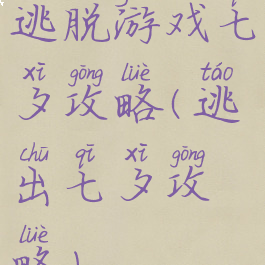 逃脱游戏七
xī gōng lüè táo
夕攻略(逃
chū qī xī gōng
出七夕攻
lüè
略)